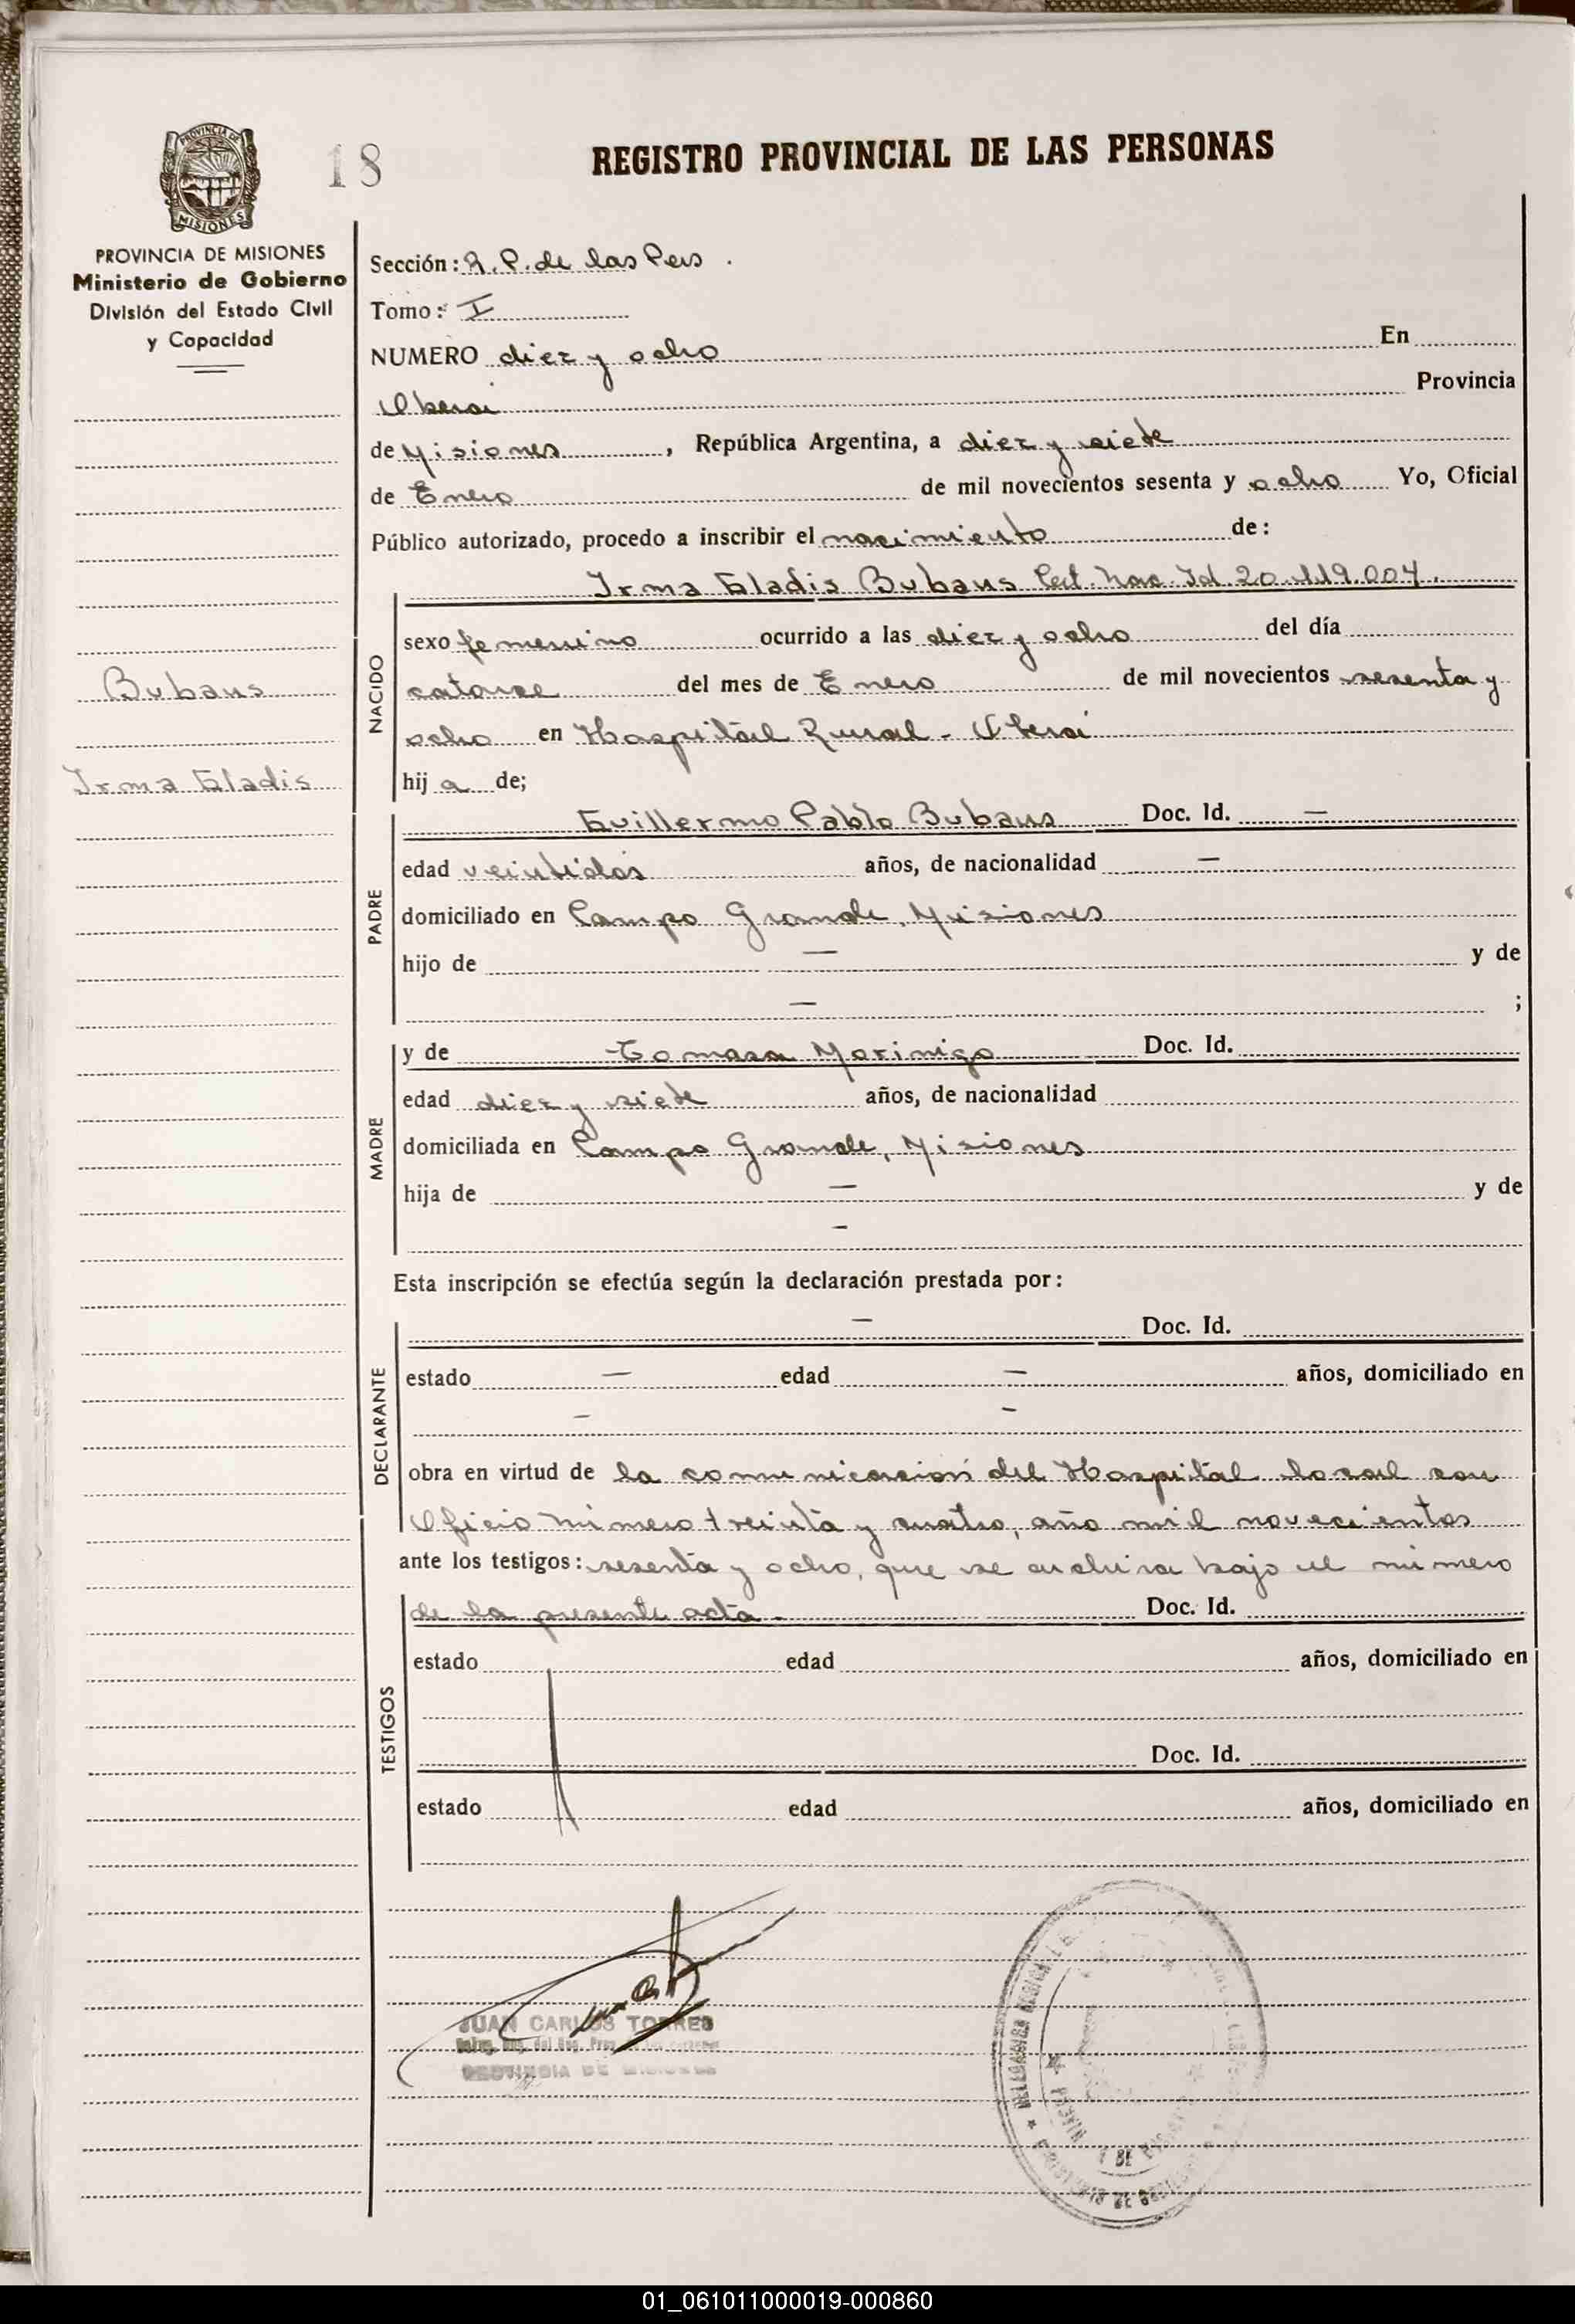 PROVINCIA DE
MISIONES
18
REGISTRO PROVINCIAL DE LAS PERSONAS
PROVINCIA DE MISIONES
Ministerio de Gobierno
División del Estado Civil
y Capacidad
Bubaus
Irma Gladis
Sección: R. P. de las Pers.
Tomo: I
NUMERO diez y ocho En
Oberá Provincia
de Misiones, República Argentina, a diez y siete
de Enero de mil novecientos sesenta y ocho Yo, Oficial
Público autorizado, procedo a inscribir el nacimiento de:
NACIDO
Irma Gladis Bubaus Cert. Nac. Id. 20.119.004.
sexo femenino ocurrido a las diez y ocho del día
catorce del mes de Enero de mil novecientos sesenta y
ocho en Hospital Rural - Oberá
hij a de;
PADRE
Guillermo Pablo Bubaus Doc. Id. —
edad veintidós años, de nacionalidad —
domiciliado en Campo Grande, Misiones
hijo de — y de
— ;
MADRE
y de Tomasa Morinigo Doc. Id.
edad diez y siete años, de nacionalidad
domiciliada en Campo Grande, Misiones
hija de — y de
—
Esta inscripción se efectúa según la declaración prestada por:
DECLARANTE
— Doc. Id.
estado — edad — años, domiciliado en
— —
obra en virtud de la comunicación del Hospital local con
Oficio número treinta y cuatro, año mil novecientos
ante los testigos: sesenta y ocho, que se archiva bajo el número
de la presente acta. Doc. Id.
TESTIGOS
estado edad años, domiciliado en
Doc. Id.
estado edad años, domiciliado en
JUAN CARLOS TORRES
PROVINCIA DE MISIONES
01_061011000019-000860